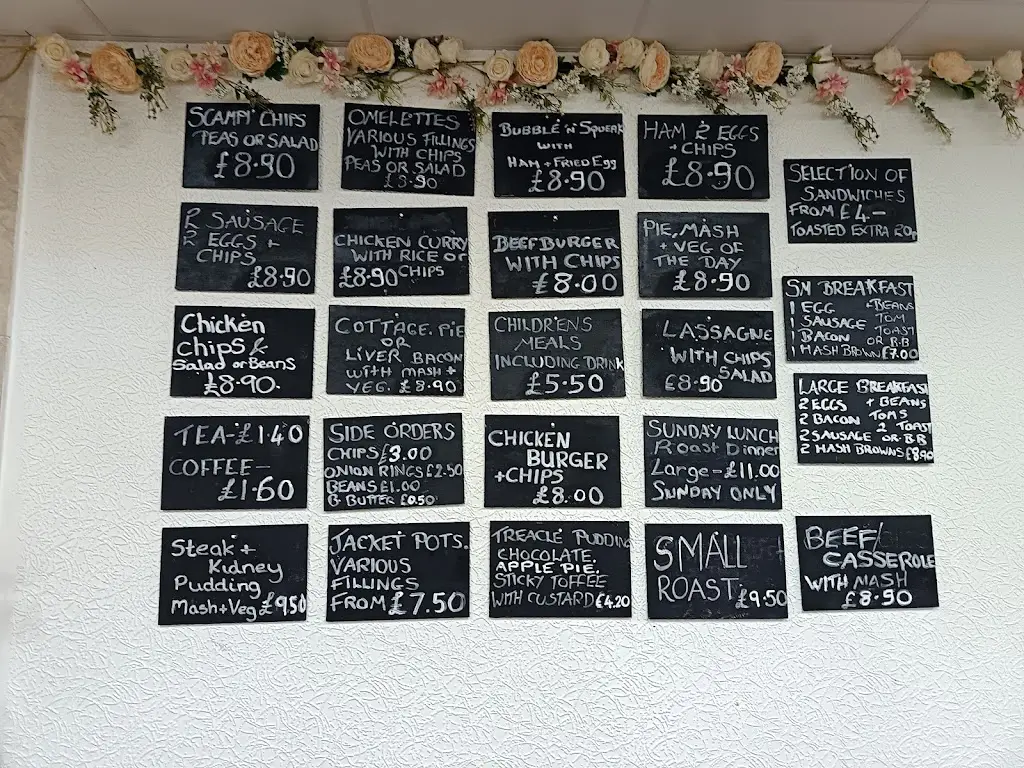 SCAMPI CHIPS
PEAS OR SALAD
£8.90
OMELETTES
VARIOUS FILLINGS
WITH CHIPS
PEAS OR SALAD
£8.90
BUBBLE 'N' SQUEAK
WITH
HAM + FRIED EGG
£8.90
HAM 2 EGGS
+ CHIPS
£8.90
SELECTION OF
SANDWICHES
FROM £4-
TOASTED EXTRA 20p
2 SAUSAGE
2 EGGS +
CHIPS
£8.90
CHICKEN CURRY
WITH RICE OR
£8.90 CHIPS
BEEFBURGER
WITH CHIPS
£8.00
PIE, MASH
+ VEG OF
THE DAY
£8.90
SM BREAKFAST
1 EGG + BEANS
1 SAUSAGE TOM
1 BACON TOAST
1 HASH BROWN OR B.B
£7.00
Chicken
Chips &
Salad or Beans
£8.90.
COTTAGE. PIE
OR
LIVER BACON
WITH MASH +
VEG. £8.90
CHILDRENS
MEALS
INCLUDING DRINK
£5.50
LASSAGNE
WITH CHIPS
£8.90 SALAD
LARGE BREAKFAST
2 EGGS + BEANS
2 BACON TOMS
2 TOAST
2 SAUSAGE OR B.B
2 HASH BROWNS £8.90
TEA-£1.40
COFFEE-
£1.60
SIDE ORDERS
CHIPS £3.00
ONION RINGS £2.50
BEANS £1.00
B BUTTER £0.50
CHICKEN
BURGER
+CHIPS
£8.00
SUNDAY LUNCH
Roast Dinner
Large-£11.00
SUNDAY ONLY
Steak +
Kidney
Pudding
Mash+Veg £9.50
JACKET POTS.
VARIOUS
FILLINGS
FROM £7.50
TREACLE PUDDING
CHOCOLATE.
APPLE PIE.
STICKY TOFFEE
WITH CUSTARD £4.20
SMALL
ROAST £9.50
BEEF/
CASSEROLE
WITH MASH
£8.90